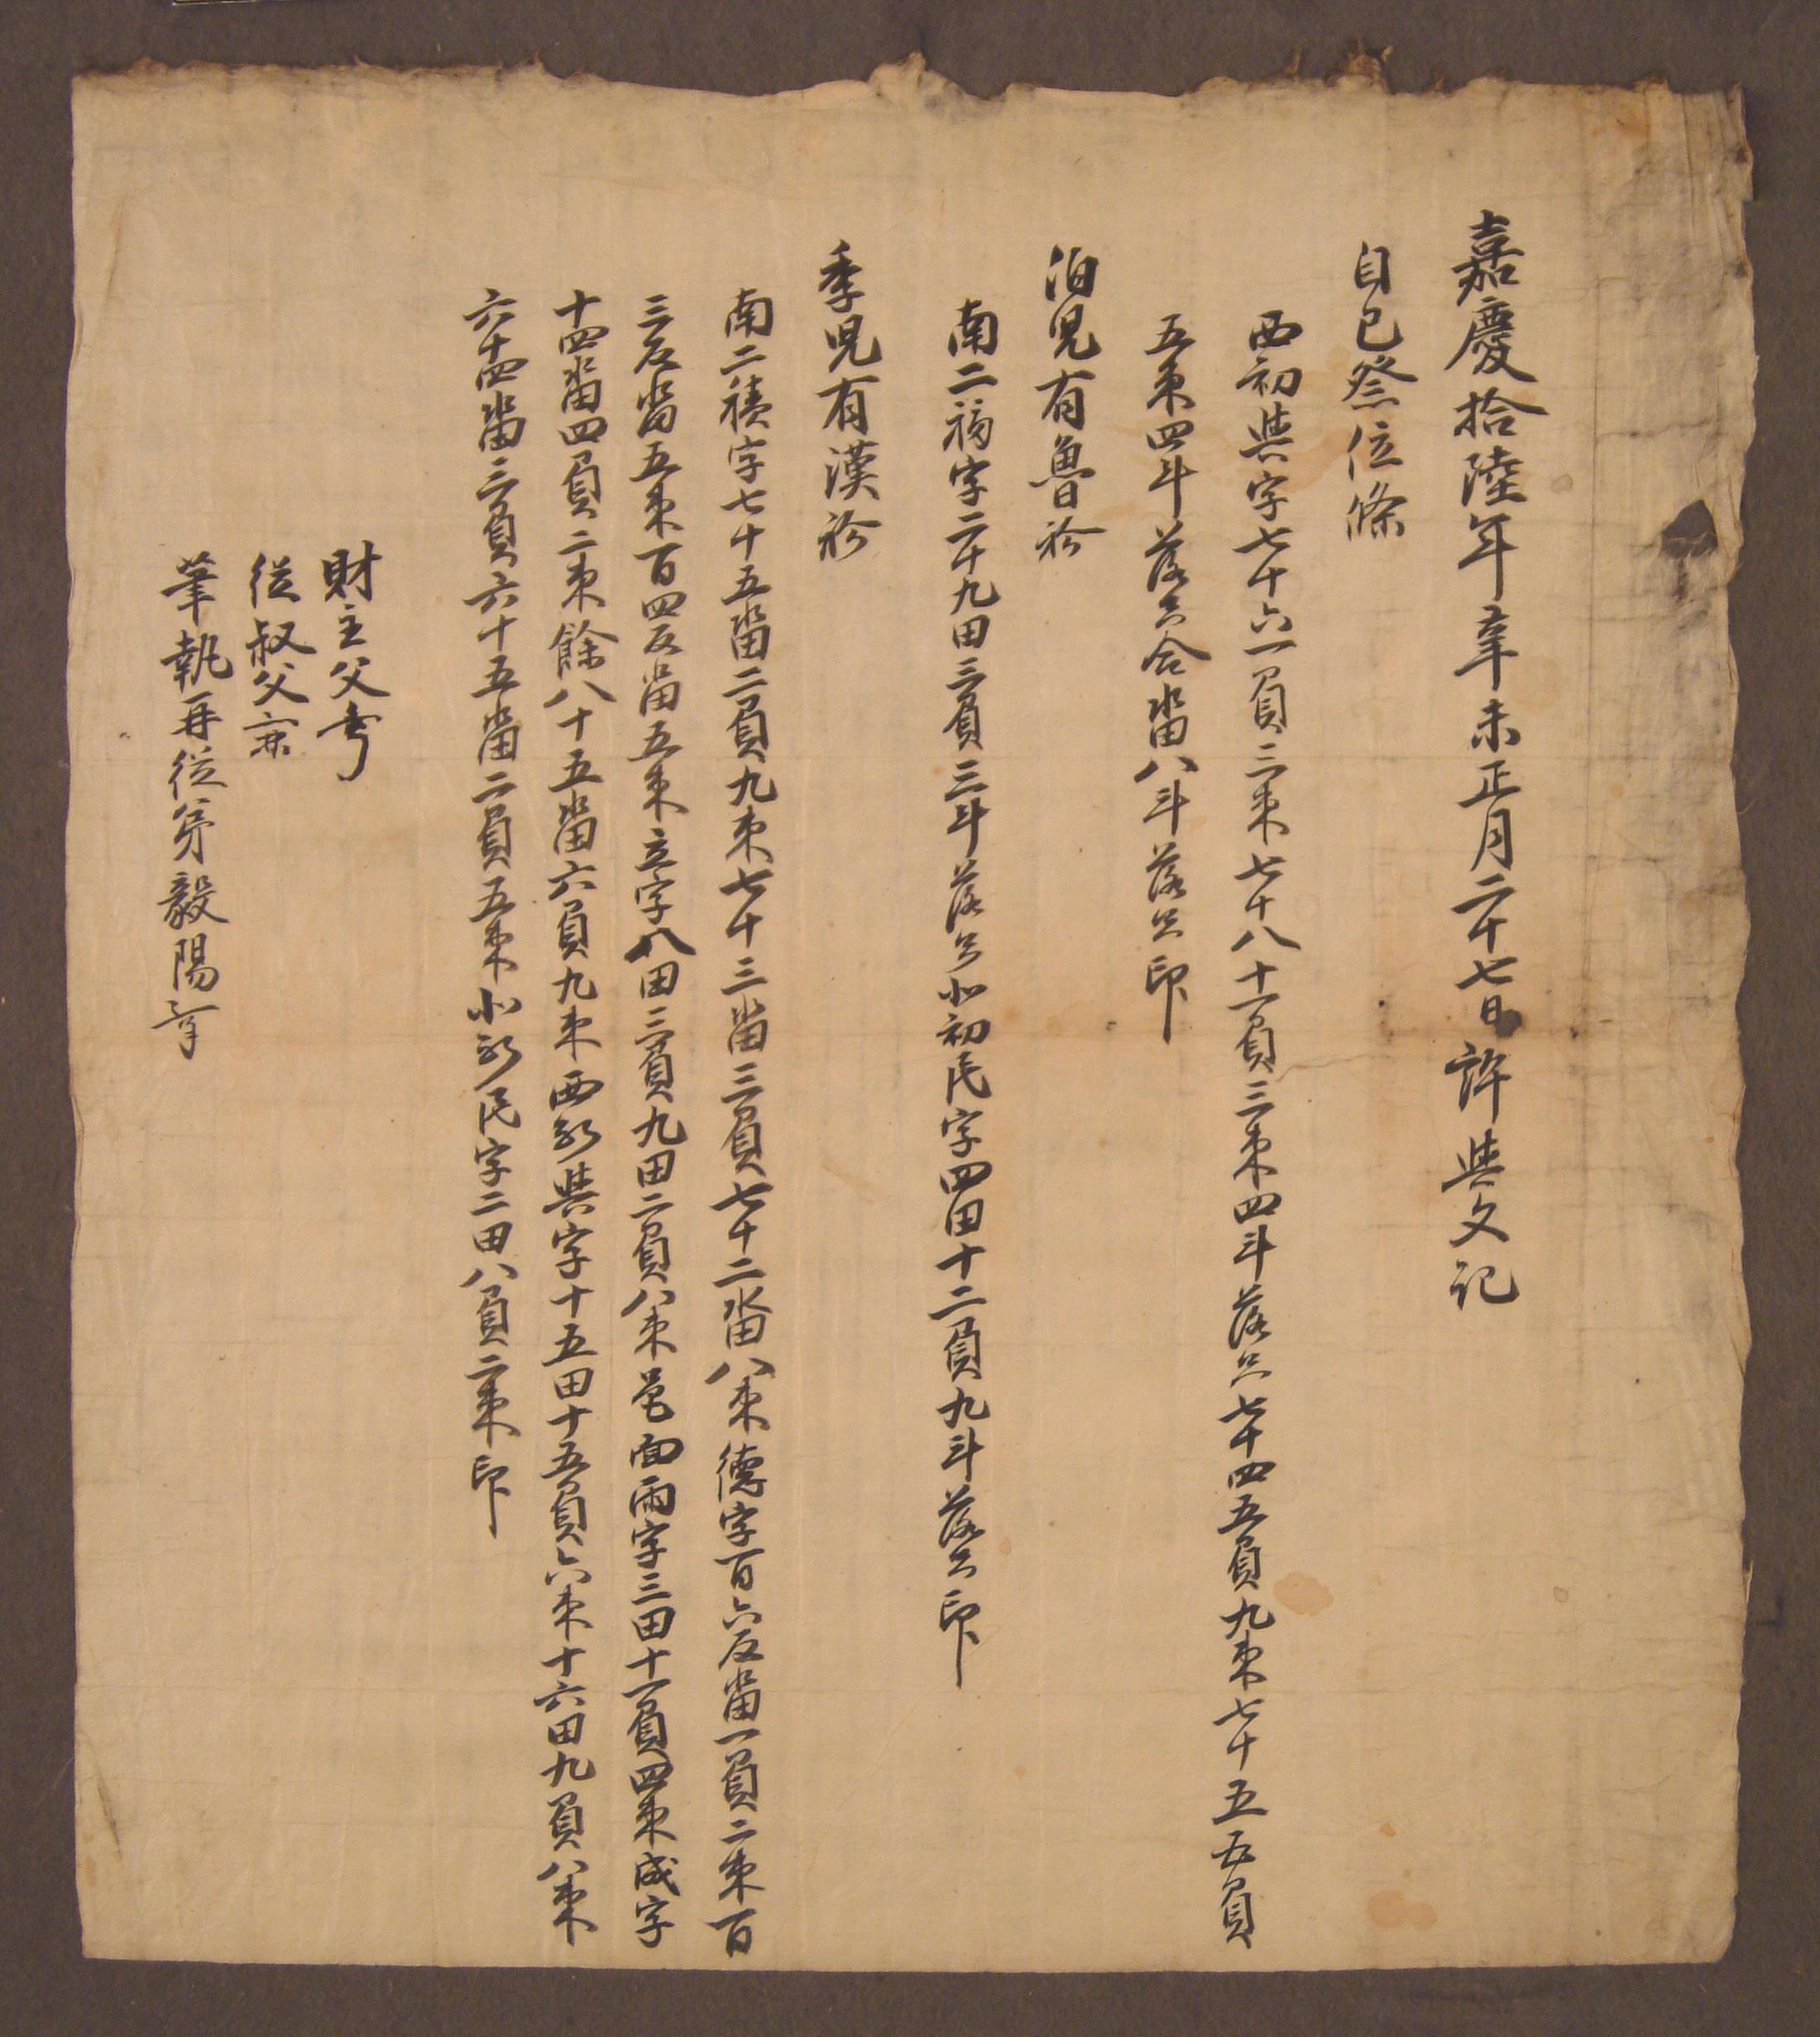 嘉慶拾陸年辛未正月二十七日許與文記
自己祭位條
西初與字七十六一負三束七十八十一負三束四斗落只七十四五負九束七十五五負
五束四斗落只合畓八斗落只印
伯児有魯衿
南二福字二十九田三負三斗落只北初民字四田十二負九斗落只印
季児有漢衿
南二積字七十五畓二負九束七十三畓三負七十二畓八束德字百六反畓一負二束百
三反畓五束百四反畓五束立字八田三負九田二負八束邑面雨字三田十一負四束成字
十四畓四負二束餘八十五畓六負九束西初與字十五田十五負六束十六田九負八束
六十四畓三負六十五畓二負五束北初民字二田八負二束印
財主父
從叔父
筆執再從弟毅陽